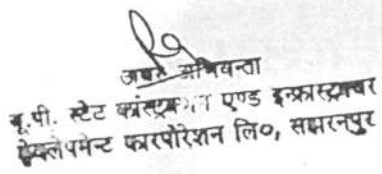 अवर अभियन्ता
यू.पी. स्टेट कंस्ट्रक्शन एण्ड इन्फ्रास्ट्रक्चर
डेवलेपमेन्ट कारपोरेशन लि०, सहारनपुर